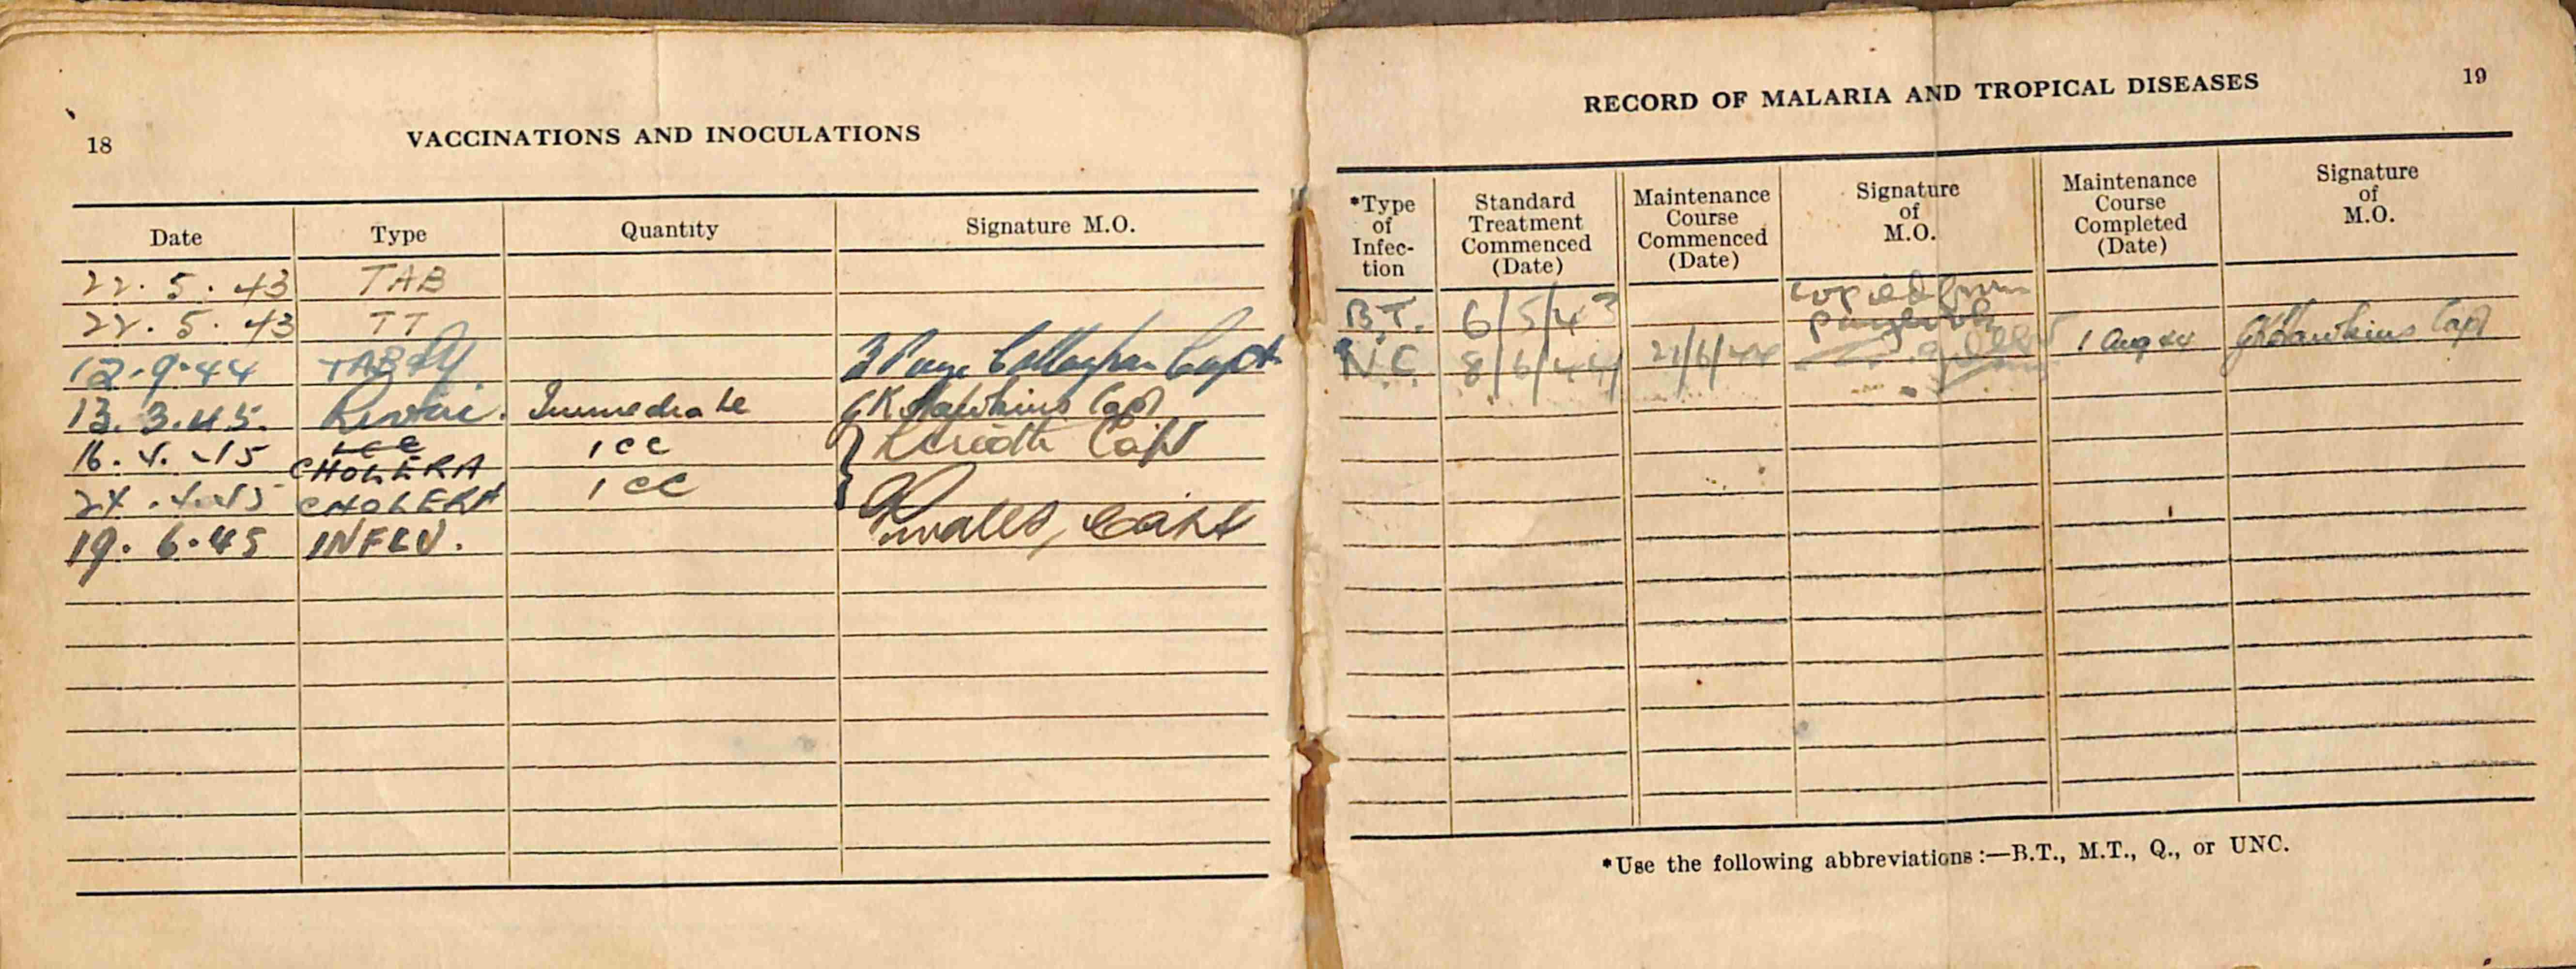 18
VACCINATIONS AND INOCULATIONS
Date Type Quantity Signature M.O.
22. 5. 43 TAB
22. 5. 43 TT
12.9.44 Callaghan Capt
13.3.45. Immediate GK Hawkins Capt
16. 4. 45 1 CC CHOLERA 1 CC Capt
24.4.45 CHOLERA 1 CC
19. 6. 45 INFLU. Capt
19
RECORD OF MALARIA AND TROPICAL DISEASES
*Type
of
Infec-
tion
Standard
Treatment
Commenced
(Date)
Maintenance
Course
Commenced
(Date)
Signature
of
M.O.
Maintenance
Course
Completed
(Date)
Signature
of
M.O.
B.T. 6/5/43 copied from
paybook
N.C. 8/6/44 21/6/44 1 Aug 44 GK Hawkins Capt
*Use the following abbreviations:—B.T., M.T., Q., or UNC.